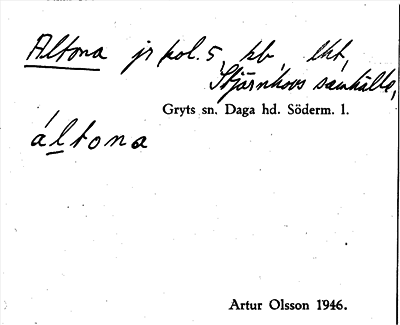 Altona jr kol. 5, kb, lht,
Stjärnhovs samhälle,
Gryts sn. Daga hd. Söderm. l.
áltona
Artur Olsson 1946.